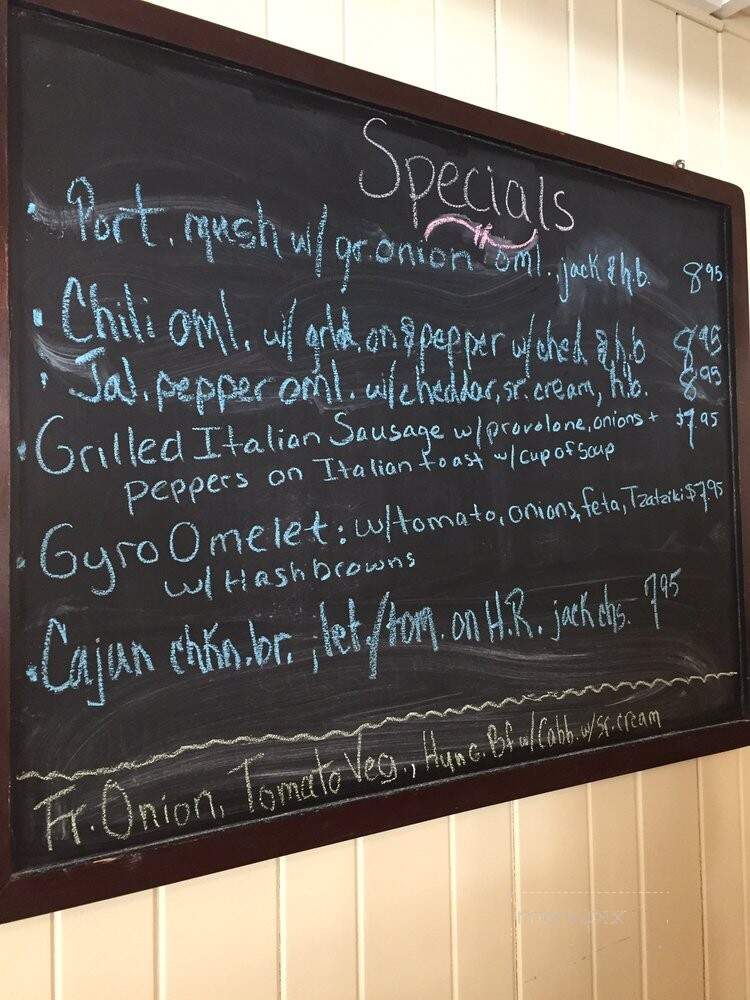 Specials
• Port. mush w/ gr. onion oml. jack & h.b. 8 95
• Chili oml. w/ grld. on & pepper w/ched. & h.b 8 95
• Jal. pepper oml. w/cheddar, sr. cream, h.b. 8 95
• Grilled Italian Sausage w/provolone, onions + $7.95
peppers on Italian toast w/ cup of soup
• Gyro Omelet: w/tomato, onions, feta, Tzatziki $7.95
w/ Hashbrowns
• Cajun chkn. br., let/tom. on H.R. jack chs. 7 95
Fr. Onion, Tomato Veg., Hung. Bf w/Cabb. w/sr. cream